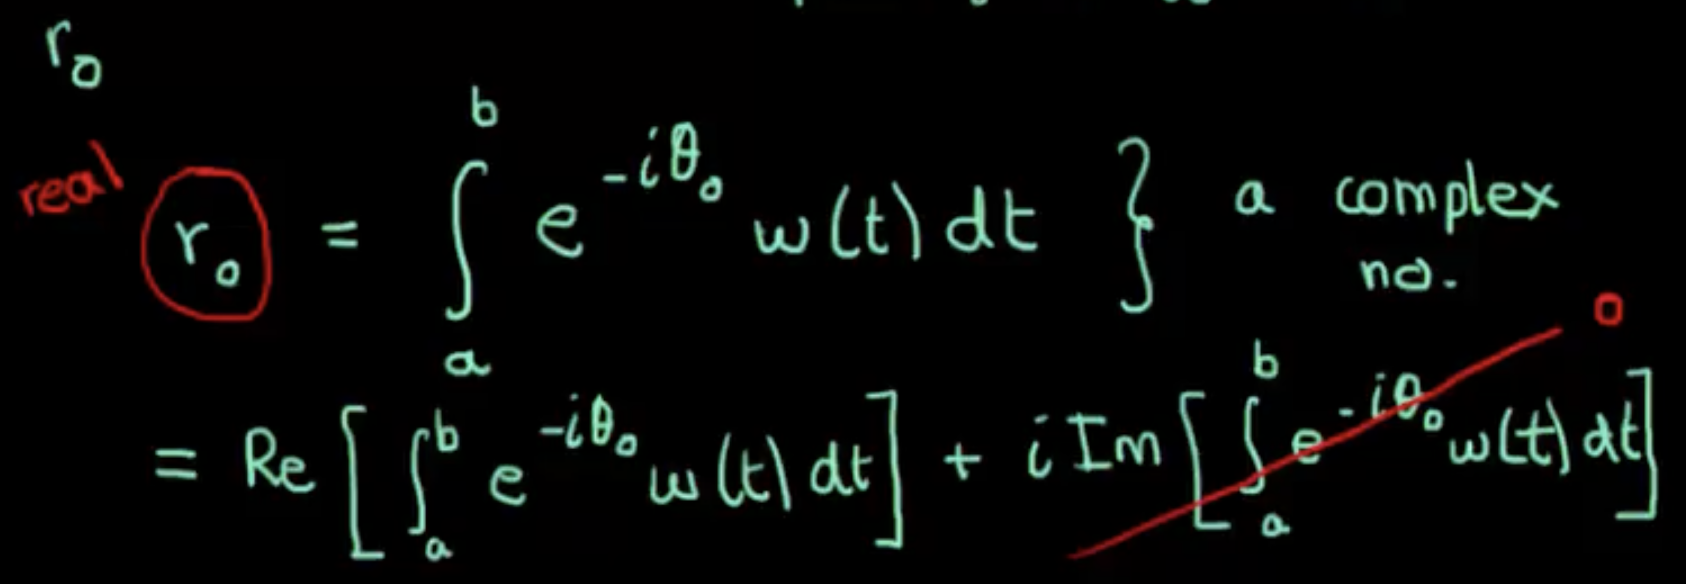 r₀
real
r₀ = ∫ₐᵇ e^{-iθ₀} w(t) dt } a complex no.
= Re [ ∫ₐᵇ e^{-iθ₀} w(t) dt ] + i Im [ ∫ₐᵇ e^{-iθ₀} w(t) dt ] 0